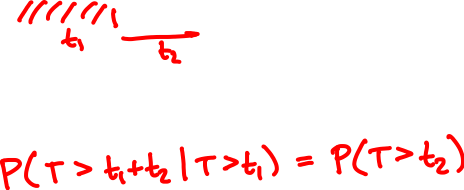 t₁
t₂
P(T > t₁+t₂ | T > t₁) = P(T > t₂)